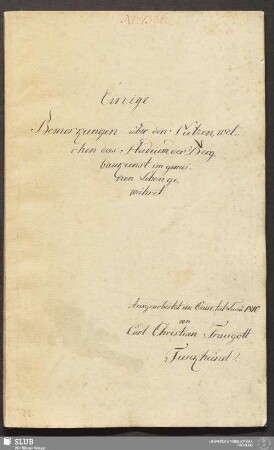 Einige
Bemerkungen über den Nutzen, wel
chen das Studium der Berg
baukunst im gemei
nen Leben ge
währet.
Ausgearbeitet im Quartal Luciä 1810
von
Carl Christian Traugott
SLUB